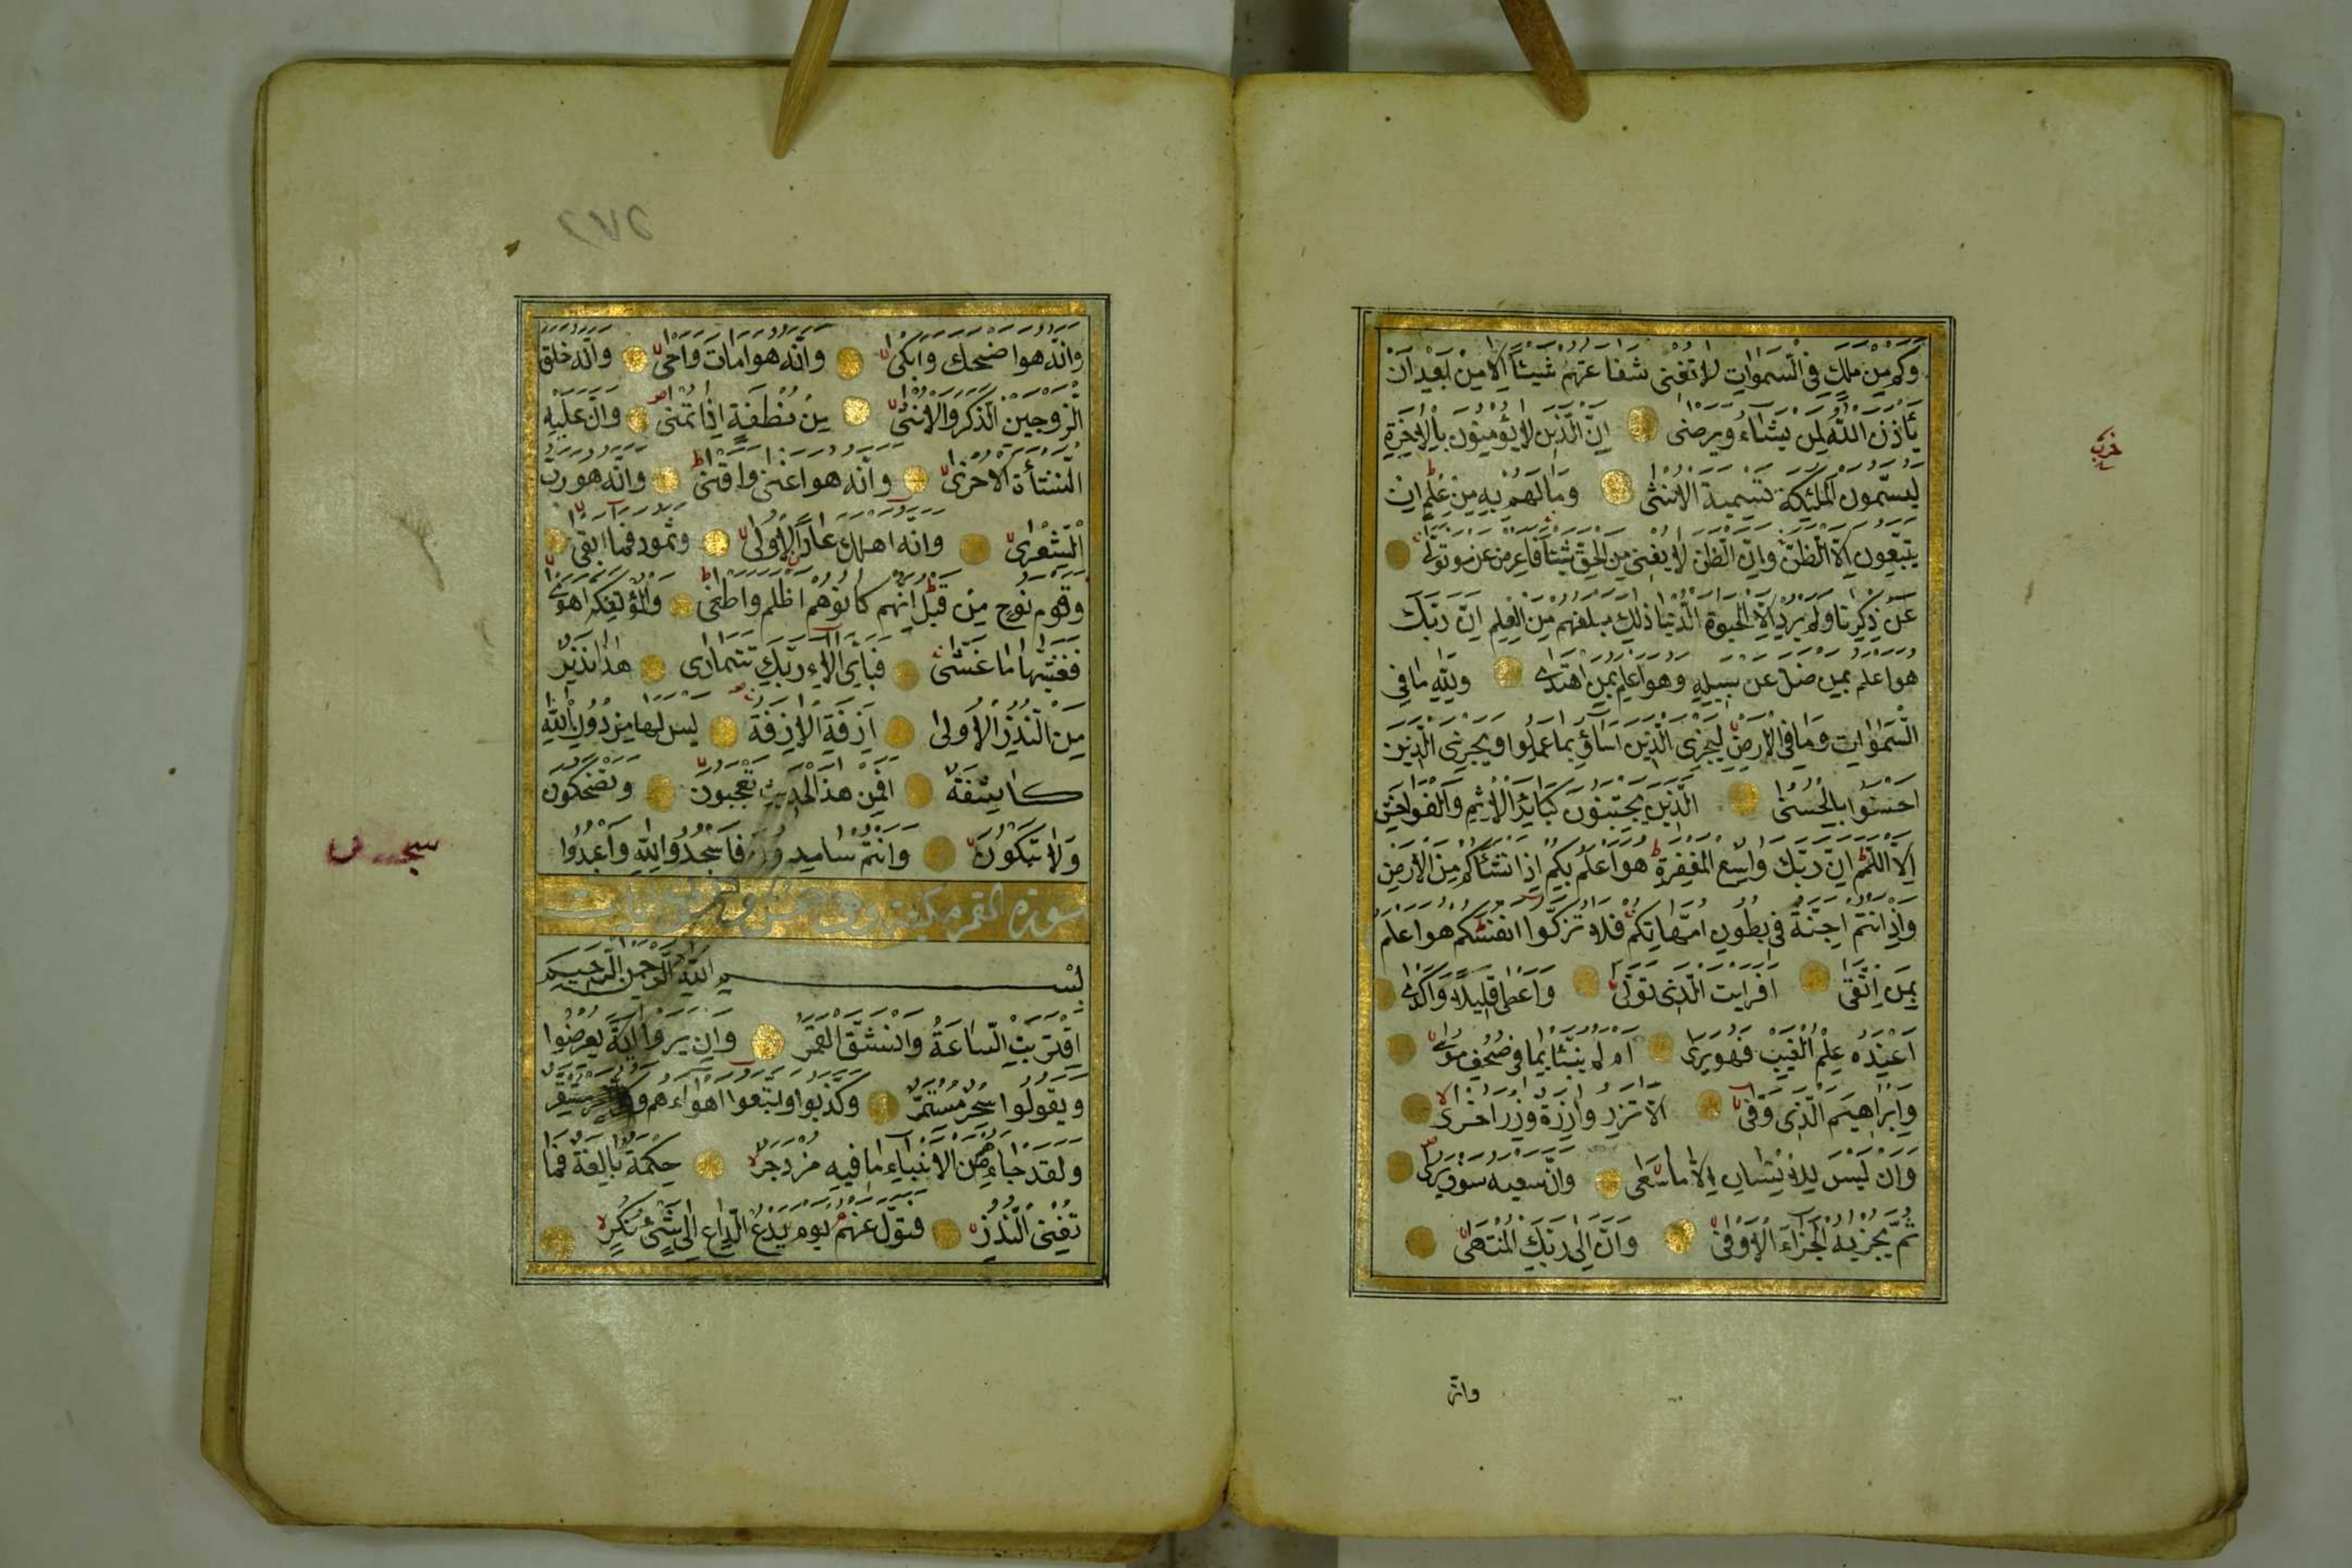 وكم من ملك في السموات لا تغنى شفاعتهم شيئا الا من بعد ان
يأذن الله لمن يشاء ويرضى ان الذين لا يؤمنون بالاخرة
ليسمون الملئكة تسمية الانثى وما لهم به من علم ان
يتبعون الا الظن وان الظن لا يغنى من الحق شيئا فاعرض عن من تولى
عن ذكرنا ولم يرد الا الحيوة الدنيا ذلك مبلغهم من العلم ان ربك
هو اعلم بمن ضل عن سبيله وهو اعلم بمن اهتدى ولله ما في
السموات وما في الارض ليجزى الذين اساؤ بما عملوا ويجزى الذين
احسنوا بالحسنى الذين يجتنبون كبائر الاثم والفواحش
الا اللمم ان ربك واسع المغفرة هو اعلم بكم اذ انشأكم من الارض
واذ انتم اجنة في بطون امهاتكم فلا تزكوا انفسكم هو اعلم
بمن اتقى افرايت الذى تولى واعطى قليلا واكدى
اعنده علم الغيب فهو يرى ام لم ينبئا بما في صحف موسى
وابراهيم الذى وفى الا تزر وازرة وزر اخرى
وان ليس للانسان الا ما سعى وان سعيه سوف يرى
ثم يجزيه الجزاء الاوفى وان الى ربك المنتهى
وانه
حزب
٢٧٥
وانه هو اضحك وابكى وانه هو امات واحيى وانه خلق
الزوجين الذكر والانثى من نطفة اذا تمنى وان عليه
النشأة الاخرى وانه هو اغنى واقنى وانه هو رب
الشعرى وانه اهلك عادا الاولى وثمود فما ابقى
وقوم نوح من قبل انهم كانوا هم اظلم واطغى والمؤتفكة اهوى
فغشيها ما غشى فبأى الاء ربك تتمارى هذا نذير
من النذر الاولى ازفة الازفة ليس لها من دون الله
كاشفة افمن هذا الحديث تعجبون وتضحكون
ولا تبكون وانتم سامدون فاسجدوا لله واعبدوا
سورة القمر مكية وهى خمس وخمسون ايات
بسم الله الرحمن الرحيم
اقتربت الساعة وانشق القمر وان يروا اية يعرضوا
ويقولوا سحر مستمر وكذبوا واتبعوا اهواءهم وكل امر مستقر
ولقد جاءهم من الانباء ما فيه مزدجر حكمة بالغة فما
تغنى النذر فتول عنهم يوم يدع الداع الى شئ نكر